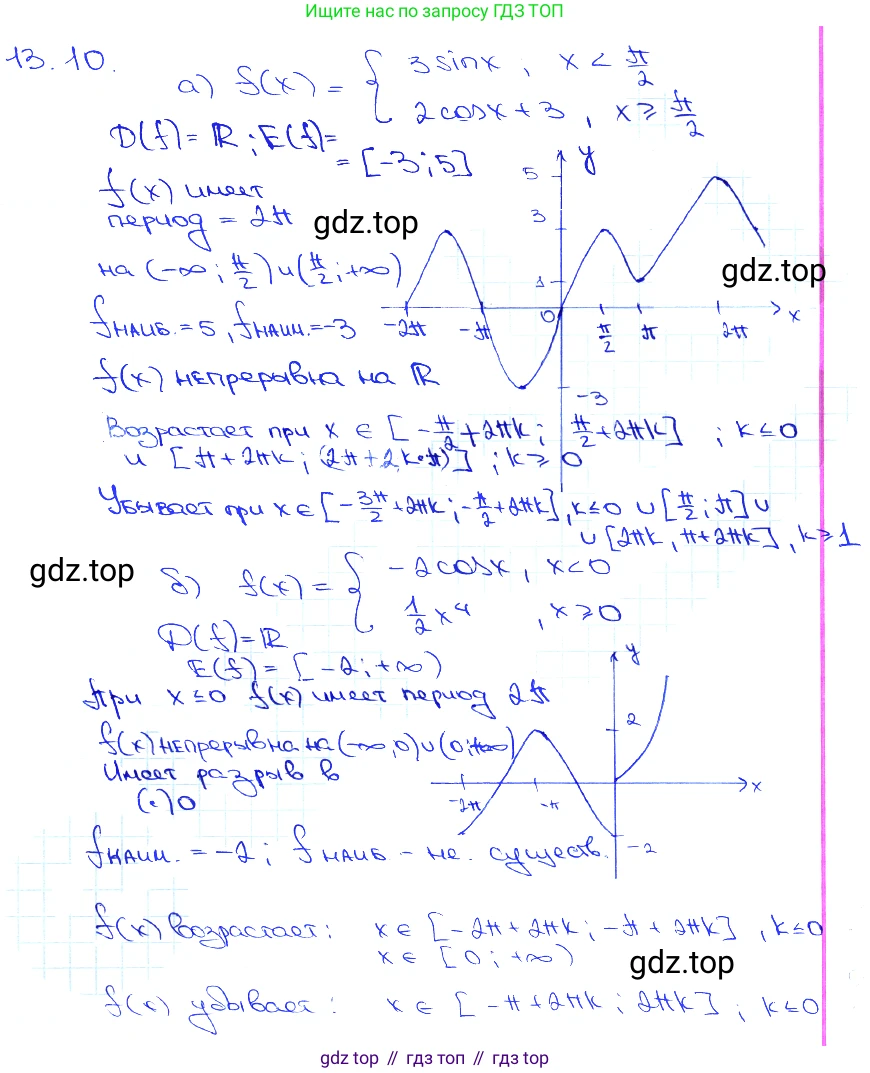 Ищите нас по запросу ГДЗ ТОП
13.10.
а) f(x) = { 3sinx, x < π/2
2cosx+3, x ≥ π/2
D(f) = R; E(f)=
= [-3; 5]
f(x) имеет
период = 2π
gdz.top
на (-∞; π/2) ∪ (π/2; +∞)
fнаиб. = 5, fнаим. = -3
f(x) непрерывна на R
y
5
3
1
0
-2π
-π
π/2
π
2π
x
-3
gdz.top
Возрастает при x ∈ [-π/2+2πk; π/2+2πk] ; k ≤ 0
и [π+2πk; (2π+2k·π)] ; k ≥ 0
Убывает при x ∈ [-3π/2+2πk; -π/2+2πk], k ≤ 0 ∪ [π/2; π] ∪
∪ [2πk, π+2πk], k ≥ 1
gdz.top
б) f(x) = { -2cosx, x<0
1/2 x⁴, x ≥ 0
D(f) = R
E(f) = [-2; +∞)
При x ≤ 0 f(x) имеет период 2π
f(x) непрерывна на (-∞, 0) ∪ (0; +∞)
Имеет разрыв в
(·) 0
y
2
-2π
-π
x
-2
fнаим. = -2; fнаиб - не. существ.
f(x) возрастает: x ∈ [-2π+2πk; -π+2πk], k ≤ 0
x ∈ [0; +∞)
gdz.top
f(x) убывает: x ∈ [-π+2πk; 2πk] ; k ≤ 0
gdz.top // гдз топ // gdz.top